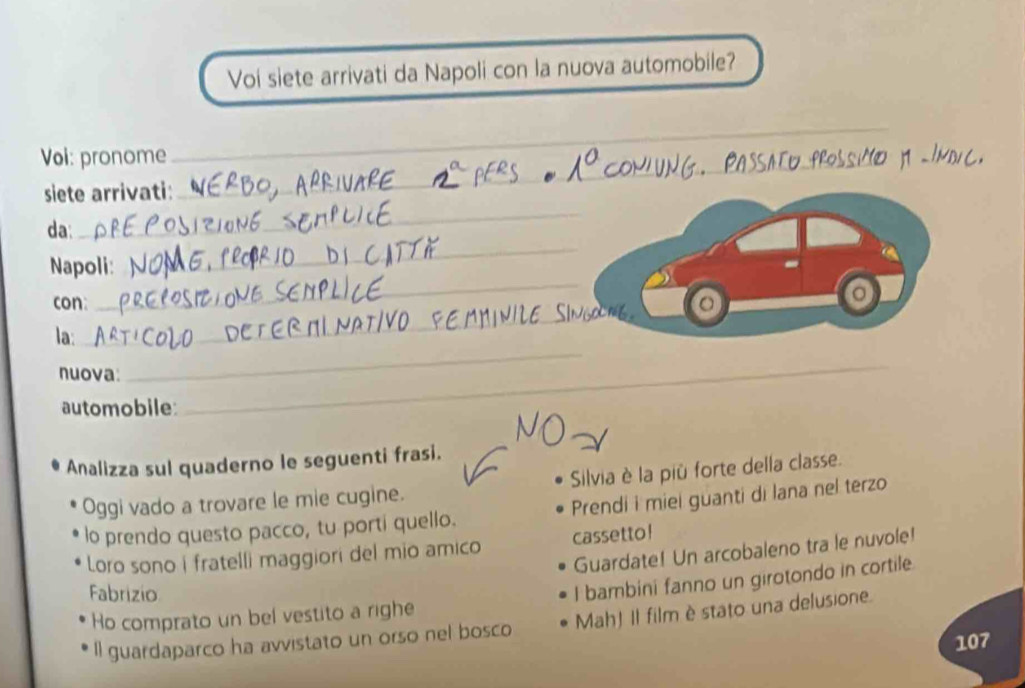 Voi siete arrivati da Napoli con la nuova automobile?
Voi: pronome
siete arrivati: VERBO, ARRIVARE 2ª PERS. 1ª CONIUNG. PASSATO PROSSIMO M. INDIC.
da: PREPOSIZIONE SEMPLICE
Napoli: NOME, PROPRIO DI CITTÀ
con: PREPOSIZIONE SEMPLICE
la: ARTICOLO DETERMINATIVO FEMMINILE SINGOLARE.
nuova:
automobile:
NO
• Analizza sul quaderno le seguenti frasi.
• Oggi vado a trovare le mie cugine.
• Io prendo questo pacco, tu porti quello.
• Loro sono i fratelli maggiori del mio amico
Fabrizio
• Ho comprato un bel vestito a righe
• Il guardaparco ha avvistato un orso nel bosco
• Silvia è la più forte della classe.
• Prendi i miei guanti di lana nel terzo
cassetto!
• Guardate! Un arcobaleno tra le nuvole!
• I bambini fanno un girotondo in cortile.
• Mah! Il film è stato una delusione.
107